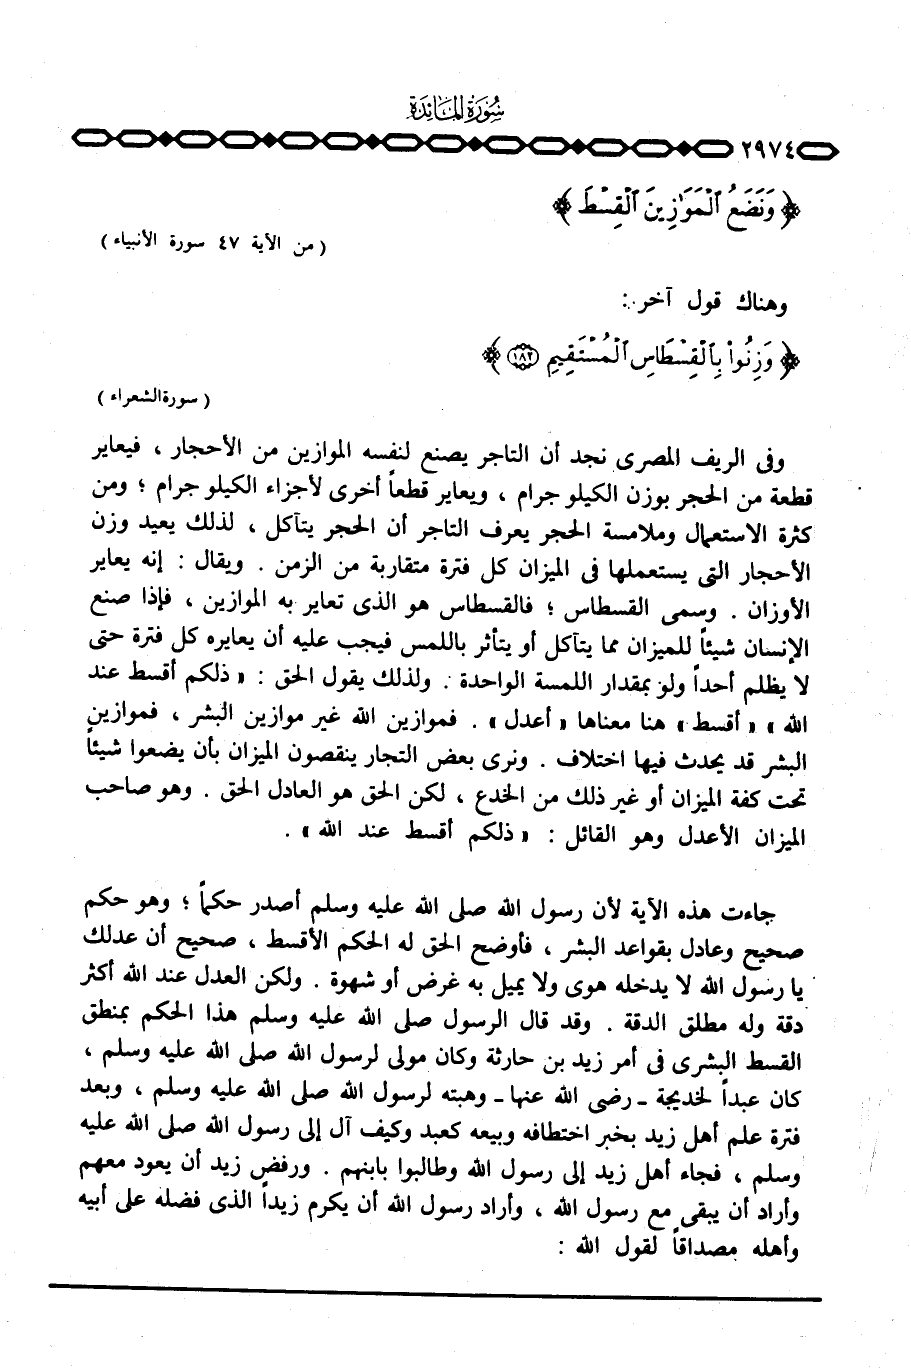 سُورَةُ المَائِدَة
٢٩٧٤
﴿ وَنَضَعُ ٱلْمَوَٰزِينَ ٱلْقِسْطَ ﴾
( من الآية ٤٧ سورة الأنبياء )
وهناك قول آخر :
﴿ وَزِنُوا۟ بِٱلْقِسْطَاسِ ٱلْمُسْتَقِيمِ ١٨٢ ﴾
( سورة الشعراء )
وفى الريف المصرى نجد أن التاجر يصنع لنفسه الموازين من الأحجار ، فيعاير
قطعة من الحجر بوزن الكيلو جرام ، ويعاير قطعاً أخرى لأجزاء الكيلو جرام ؛ ومن
كثرة الاستعمال وملامسة الحجر يعرف التاجر أن الحجر يتآكل ، لذلك يعيد وزن
الأحجار التى يستعملها فى الميزان كل فترة متقاربة من الزمن . ويقال : إنه يعاير
الأوزان . وسمى القسطاس ؛ فالقسطاس هو الذى تعاير به الموازين ، فإذا صنع
الإنسان شيئاً للميزان مما يتآكل أو يتأثر باللمس فيجب عليه أن يعايره كل فترة حتى
لا يظلم أحداً ولو بمقدار اللمسة الواحدة . ولذلك يقول الحق : « ذلكم أقسط عند
الله » « أقسط » هنا معناها « أعدل » . فموازين الله غير موازين البشر ، فموازين
البشر قد يحدث فيها اختلاف . ونرى بعض التجار ينقصون الميزان بأن يضعوا شيئاً
تحت كفة الميزان أو غير ذلك من الخدع ، لكن الحق هو العادل الحق . وهو صاحب
الميزان الأعدل وهو القائل : « ذلكم أقسط عند الله » .
جاءت هذه الآية لأن رسول الله صلى الله عليه وسلم أصدر حكماً ؛ وهو حكم
صحيح وعادل بقواعد البشر ، فأوضح الحق له الحكم الأقسط ، صحيح أن عدلك
يا رسول الله لا يدخله هوى ولا يميل به غرض أو شهوة . ولكن العدل عند الله أكثر
دقة وله مطلق الدقة . وقد قال الرسول صلى الله عليه وسلم هذا الحكم بمنطق
القسط البشرى فى أمر زيد بن حارثة وكان مولى لرسول الله صلى الله عليه وسلم ،
كان عبداً لخديجة ـ رضى الله عنها ـ وهبته لرسول الله صلى الله عليه وسلم ، وبعد
فترة علم أهل زيد بخبر اختطافه وبيعه كعبد وكيف آل إلى رسول الله صلى الله عليه
وسلم ، فجاء أهل زيد إلى رسول الله وطالبوا بابنهم . ورفض زيد أن يعود معهم
وأراد أن يبقى مع رسول الله ، وأراد رسول الله أن يكرم زيداً الذى فضله على أبيه
وأهله مصداقاً لقول الله :